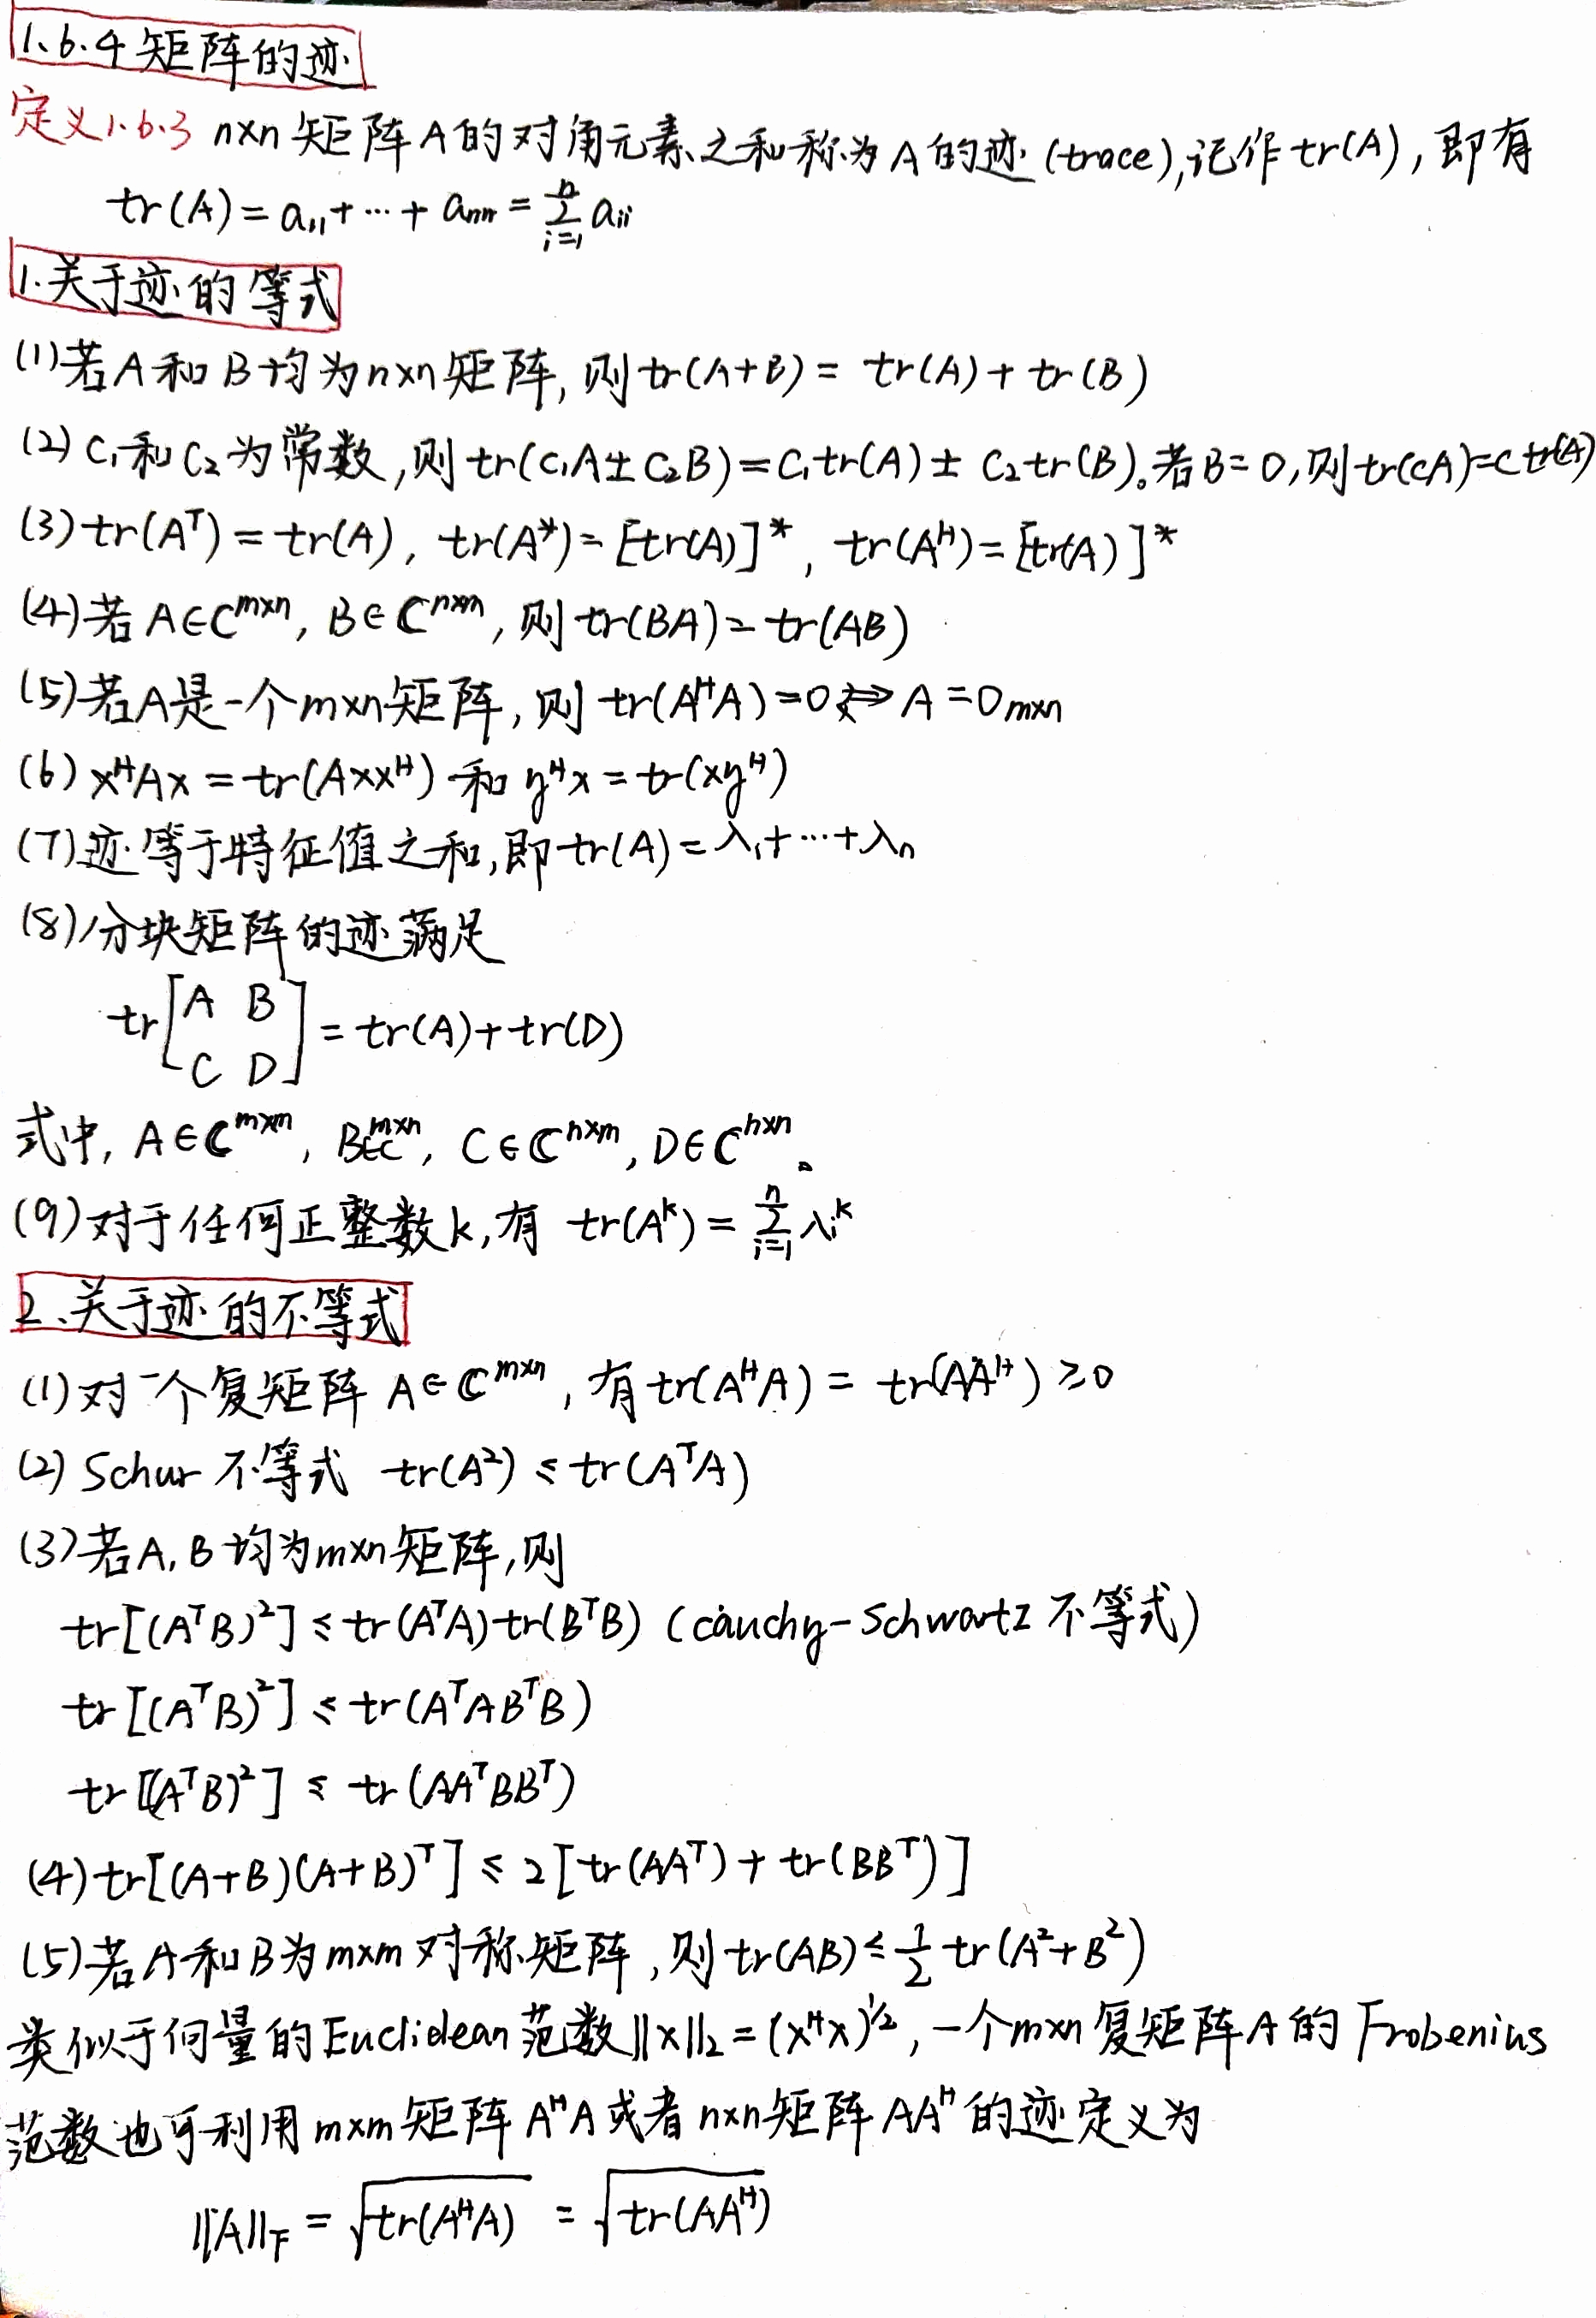 1.6.4 矩阵的迹
定义1.6.3 n×n 矩阵 A 的对角元素之和称为 A 的迹 (trace),记作 tr(A), 即有
tr(A) = a₁₁ + ⋯ + aₙₙ = ∑ᵢ₌₁ⁿ aᵢᵢ
1.关于迹的等式
(1)若 A 和 B 均为 n×n 矩阵, 则 tr(A+B) = tr(A) + tr(B)
(2) C₁和 C₂ 为常数, 则 tr(C₁A ± C₂B) = C₁tr(A) ± C₂tr(B)。若 B = 0, 则 tr(cA)=c tr(A)
(3) tr(Aᵀ) = tr(A), tr(A*) = [tr(A)]*, tr(Aᴴ) = [tr(A)]*
(4)若 A∈C^{m×n}, B∈C^{n×m}, 则 tr(BA) = tr(AB)
(5)若A是一个m×n矩阵, 则 tr(AᴴA) = 0 ⇔ A = 0ₘₓₙ
(6) xᴴAx = tr(Axxᴴ) 和 yᴴx = tr(xyᴴ)
(7)迹等于特征值之和,即 tr(A) = λ₁ + ⋯ + λₙ
(8)分块矩阵的迹满足
tr[A B
C D] = tr(A) + tr(D)
式中, A∈C^{m×m}, B∈C^{m×n}, C∈C^{n×m}, D∈C^{n×n}。
(9)对于任何正整数k,有 tr(Aᵏ) = ∑ᵢ₌₁ⁿ λᵢᵏ
2、关于迹的不等式
(1)对一个复矩阵 A∈C^{m×n}, 有 tr(AᴴA) = tr(AAᴴ) ≥ 0
(2) Schur 不等式 tr(A²) ≤ tr(AᵀA)
(3)若A, B 均为m×n矩阵,则
tr[(AᵀB)²] ≤ tr(AᵀA)tr(BᵀB) (cauchy-Schwartz 不等式)
tr[(AᵀB)²] ≤ tr(AᵀABᵀB)
tr[(AᵀB)²] ≤ tr(AAᵀBBᵀ)
(4) tr[(A+B)(A+B)ᵀ] ≤ 2[tr(AAᵀ) + tr(BBᵀ)]
(5)若A和B为m×m对称矩阵, 则 tr(AB) ≤ ½ tr(A²+B²)
类似于向量的Euclidean范数||x||₂ = (xᴴx)^{1/2}, 一个m×n复矩阵A的 Frobenius
范数也可利用 m×m矩阵 AᴴA 或者 n×n矩阵 AAᴴ 的迹定义为
||A||_F = √tr(AᴴA) = √tr(AAᴴ)